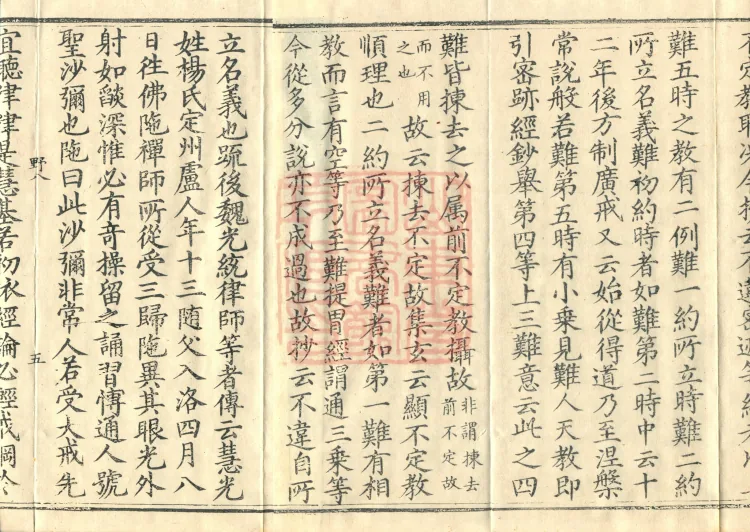 難五時之教有二例難一約所立時難二約
所立名義難初約時者如難第二時中云十
二年後方制廣戒又云始從得道乃至涅槃
常說般若難第五時有小乘見難人天教即
引密跡經鈔舉第四等上三難意云此之四
難皆揀去之以属前不定教攝故非謂揀去前不定故
而不用之也故云揀去不定故集玄云顯不定教
順理也二約所立名義難者如第一難有相
教而言有空等乃至難提胃經謂通三乘等
今從多分說亦不成過也故抄云不違自所
立名義也䟽後魏光統律師等者傳云慧光
姓楊氏定州盧人年十三随父入洛四月八
日往佛陁禪師所從受三歸陁異其眼光外
射如燄深惟必有奇操留之誦習愽通人號
聖沙彌也陁曰此沙彌非常人若受大戒先
野八
五
宜聽律律是慧基若初衣經論必輕戒綱於